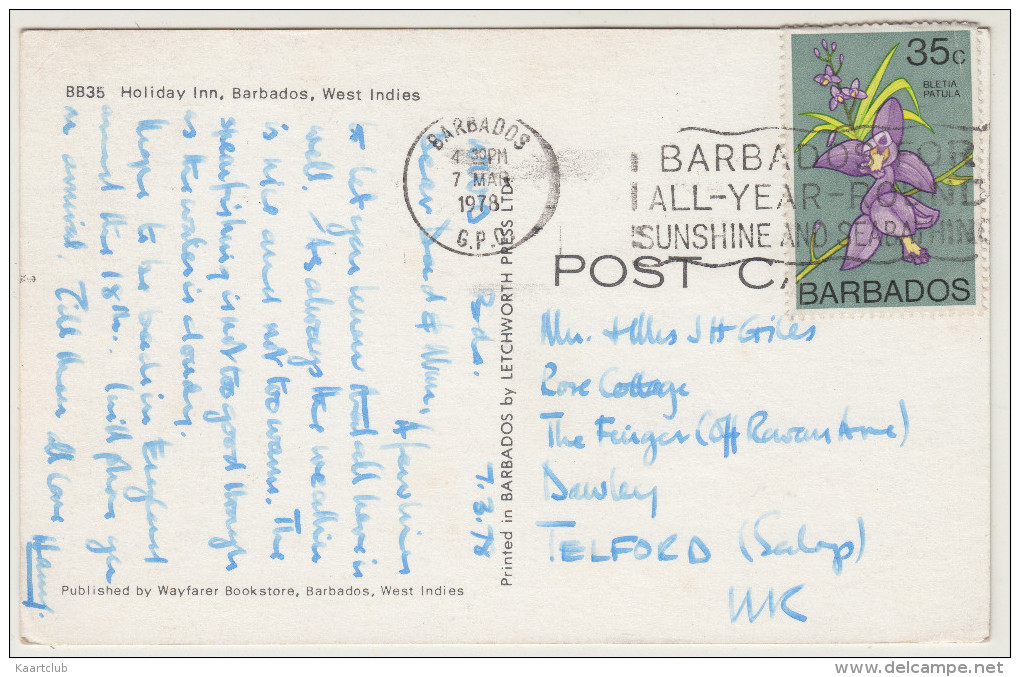 BB35 Holiday Inn, Barbados, West Indies
BARBADOS
4 30PM
7 MAR
1978
G.P.O.
BARBADOS FOR
ALL-YEAR-ROUND
SUNSHINE AND SEABATHING
35c
BLETIA
PATULA
BARBADOS
POST CA
Printed in BARBADOS by LETCHWORTH PRESS LTD.
Bds. 7.3.78
Dear Dad & Mum, A few lines
to let you know that all here is
well. As always the weather
is nice and not too warm. The
spearfishing is not too good though
as the water is cloudy.
Hope to be back in England
around the 18th. Will phone you
on arrival. Till then all love
Henry.
Mr. & Mrs J H Giles
Rose Cottage
The Finger (Off Rowan Ave)
Dawley
TELFORD (Salop)
UK
Published by Wayfarer Bookstore, Barbados, West Indies
Kaartclub
http://www.delcampe.net